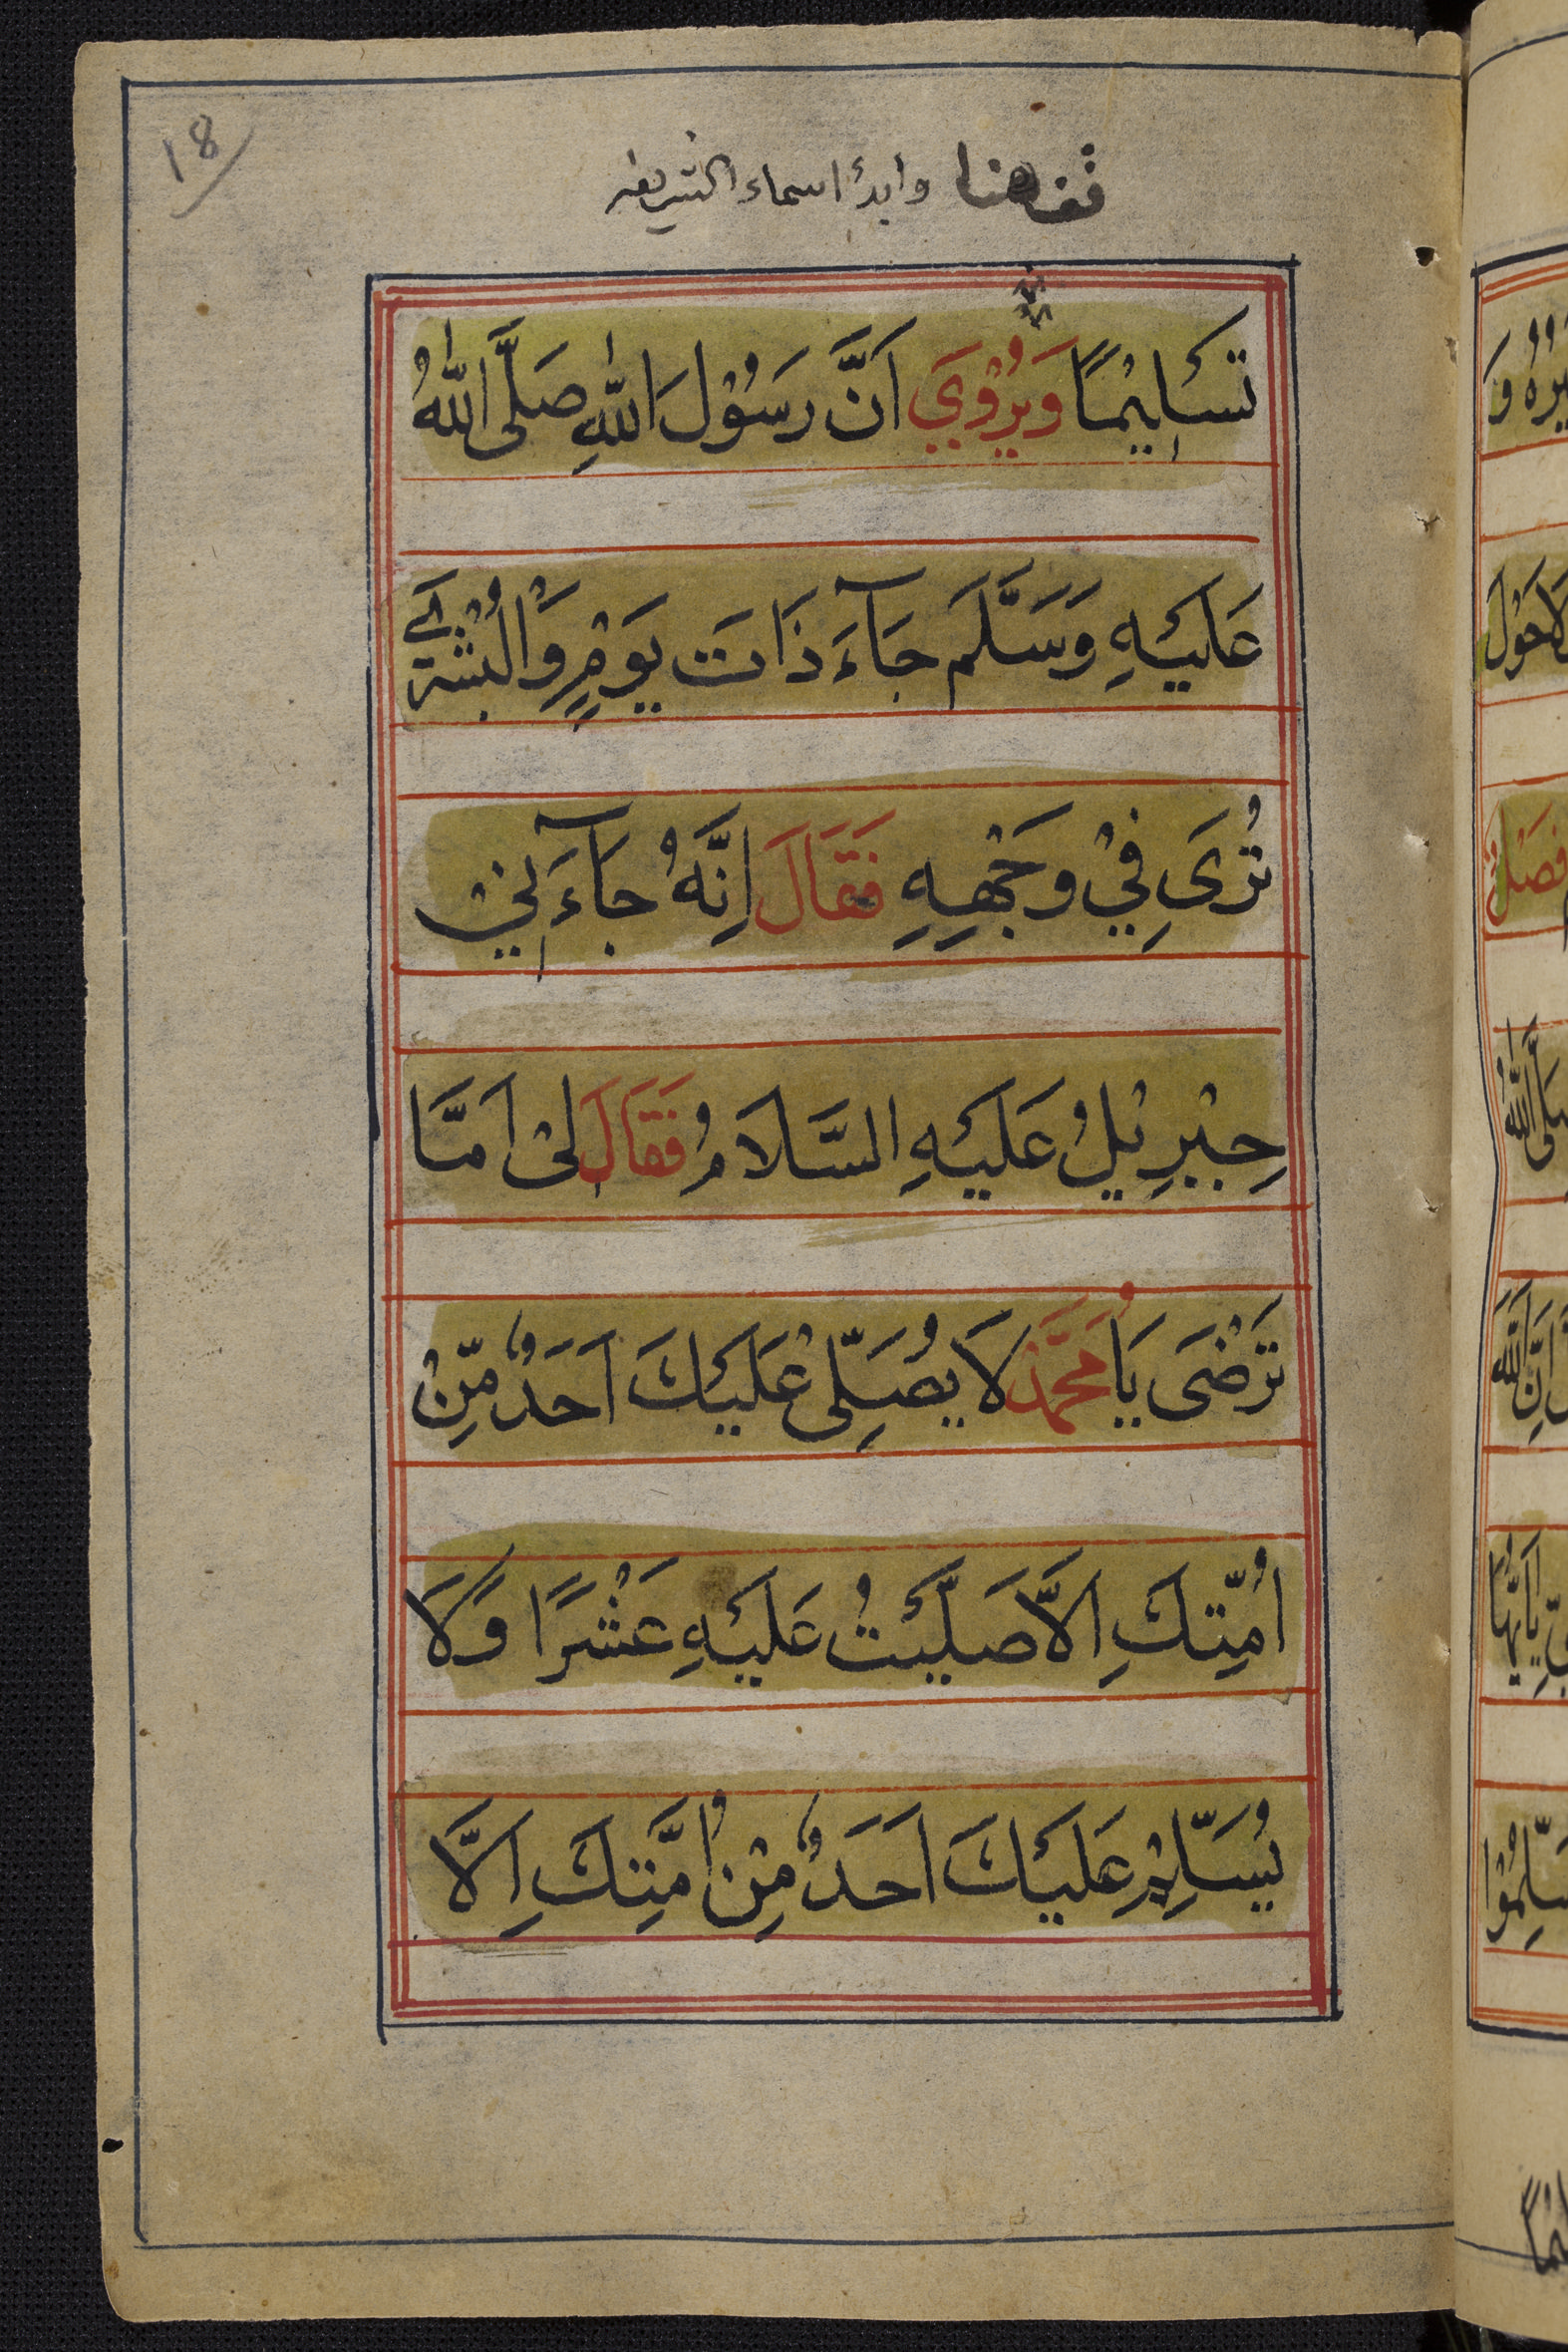 18
قف هنا وابدأ اسماء الشريفه
تَسْلِيْمًا وَيُرْوٰيَ اَنَّ رَسُوْلَ اللّٰهِ صَلَّى اللّٰهُ
عَلَيْهِ وَسَلَّمَ جَآءَ ذَاتَ يَوْمٍ وَّالْبُشْرٰي
تُرَىِ فِيْ وَجْهِهِ فَقَالَ اِنَّهُ جَآءَنِيْ
جِبْرِيْلُ عَلَيْهِ السَّلَامُ فَقَالَ لِيْ اَمَّا
تَرْضَى يَا مُحَمَّدُ لَا يُصَلِّىْ عَلَيْكَ اَحَدٌ مِّنْ
اُمَّتِكَ اِلَّا صَلَّيْتُ عَلَيْهِ عَشْرًا وَّلَا
يُسَلِّمْ عَلَيْكَ اَحَدٌ مِنْ اُمَّتِكَ اِلَّا